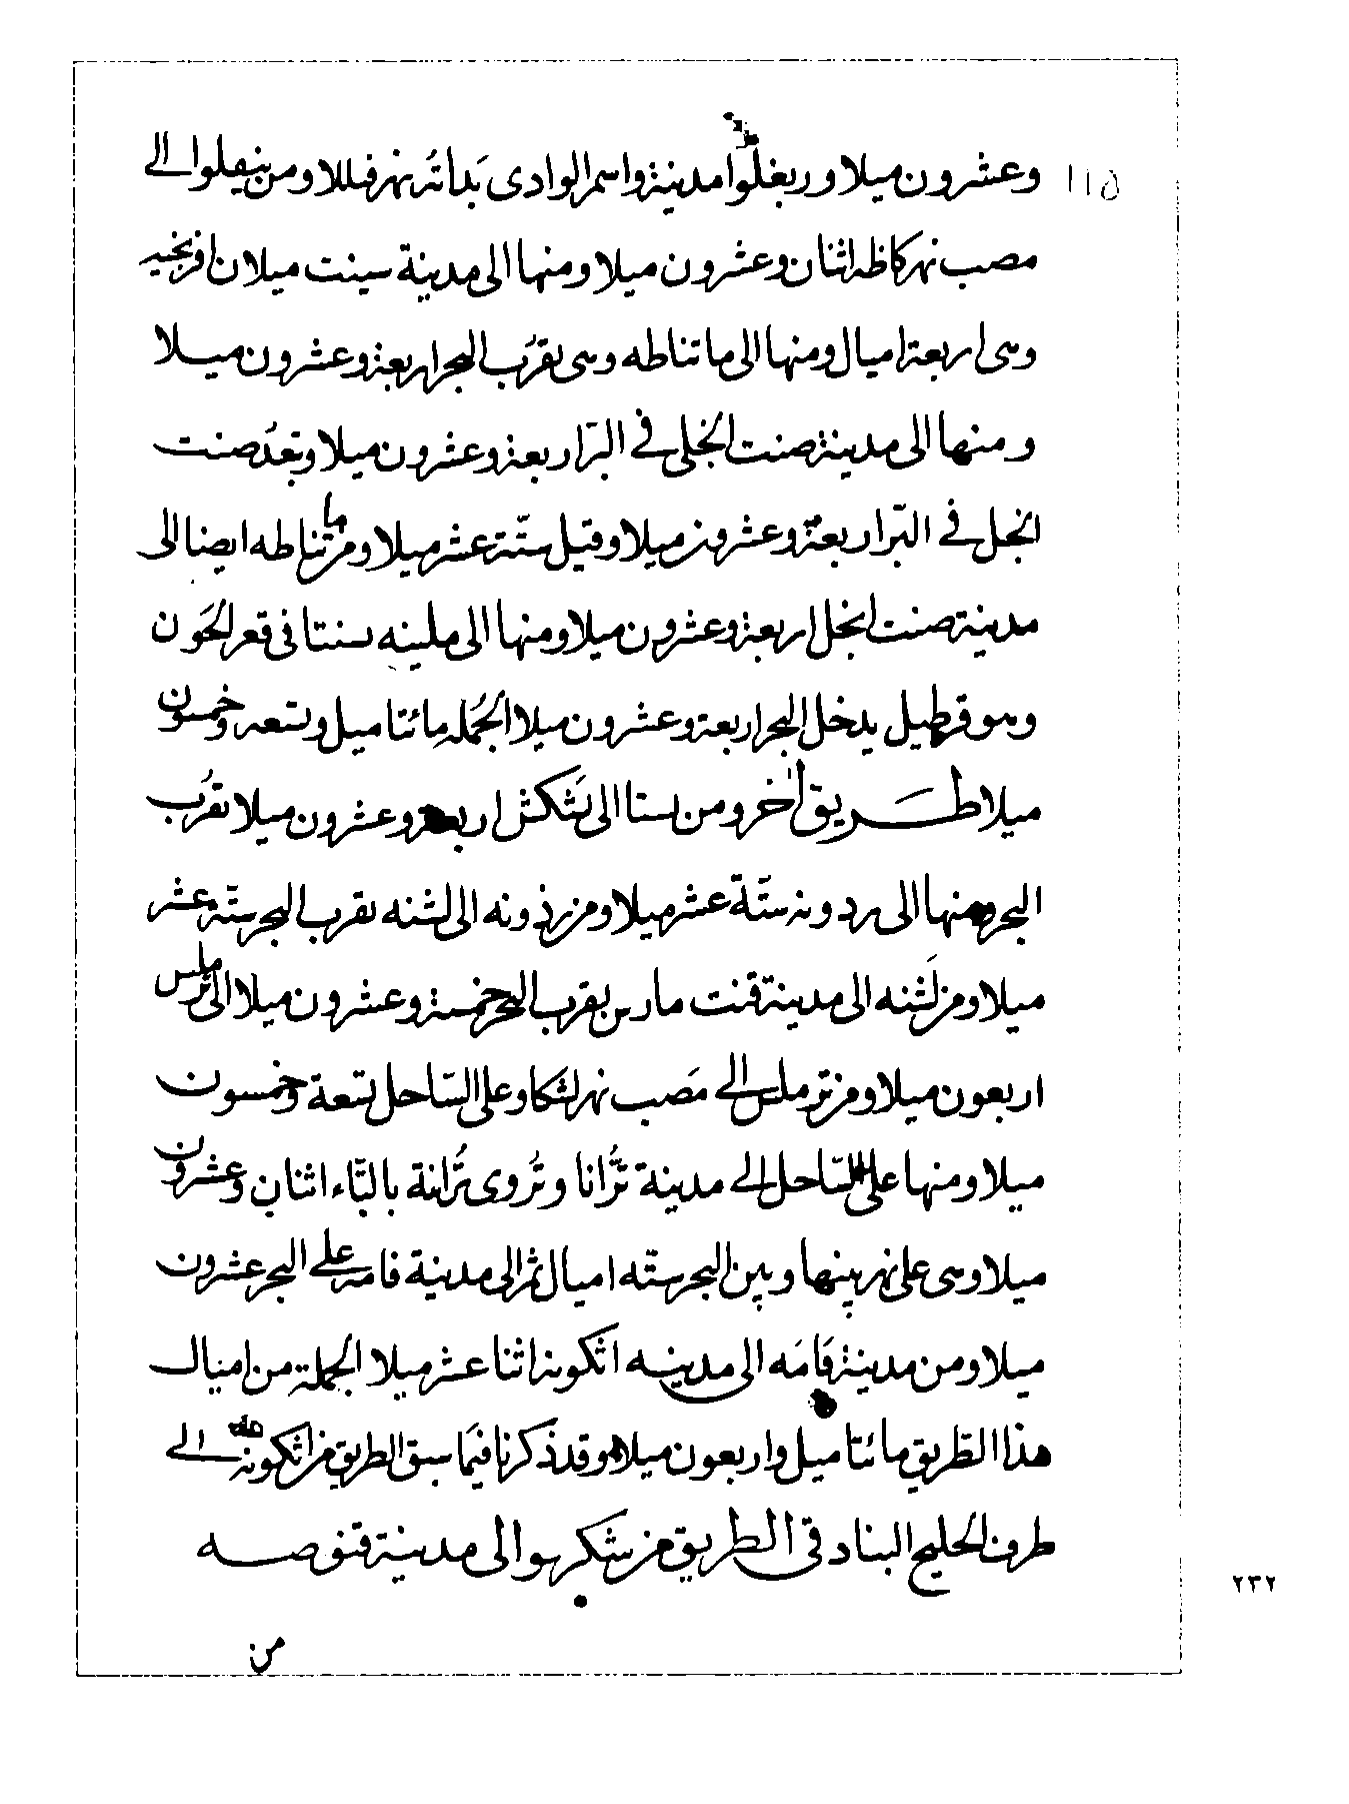 وعشرون ميلا وربغلوا مدينة واسم الوادى بداته نهر فللا ومن ينقلوا الى
١١٥
مصب نهر كاظه اثنان وعشرون ميلا ومنها الى مدينة سينت ميلان افرنجيه
وهى اربعة اميال ومنها الى ماتناطه وهى بقرب البحر اربعة وعشرون ميلا
ومنها الى مدينة صنت انجلى فى البر اربعة وعشرون ميلا وتبعد صنت
انجل فى البر اربعة وعشرون ميلا وقيل ستة عشر ميلا ومن ماتناطه ايضا الى
مدينة صنت انجل اربعة وعشرون ميلا ومنها الى مدينه بستنا فى قعر الجون
وهو قرطيل يدخل البحر اربعة وعشرون ميلا الجمله مائتا ميل وتسعه وخمسون
ميلا طريق اخر ومن بستا الى بشكش اربعه وعشرون ميلا بقرب
البحر ومنها الى رذونه ستة عشر ميلا ومن رذونه الى لشنه بقرب البحر ستة عشر
ميلا ومن لشنه الى مدينة قنت مارىن بقرب البحر خمسة وعشرون ميلا الى ترملس
اربعون ميلا ومن ترملس الى مصب نهر لشكا وعلى الساحل تسعة وخمسون
ميلا ومنها على الساحل الى مدينة ترانا وتروى ترانة بالتاء اثنان وعشرون
ميلا وهى على نهر بينها وبين البحر سته اميال ثم الى مدينة فامه على البحر عشرون
ميلا ومن مدينة فامه الى مدينه اثكونه اثنا عشر ميلا الجملة من اميال
هذا الطريق مائتا ميل واربعون ميلا وقد ذكرنا فيما سبق الطريق من اثكونه الى
طرف الخليج البنادقى الطريق من شكربوا الى مدينة قنفوصه
٢٣٢
من